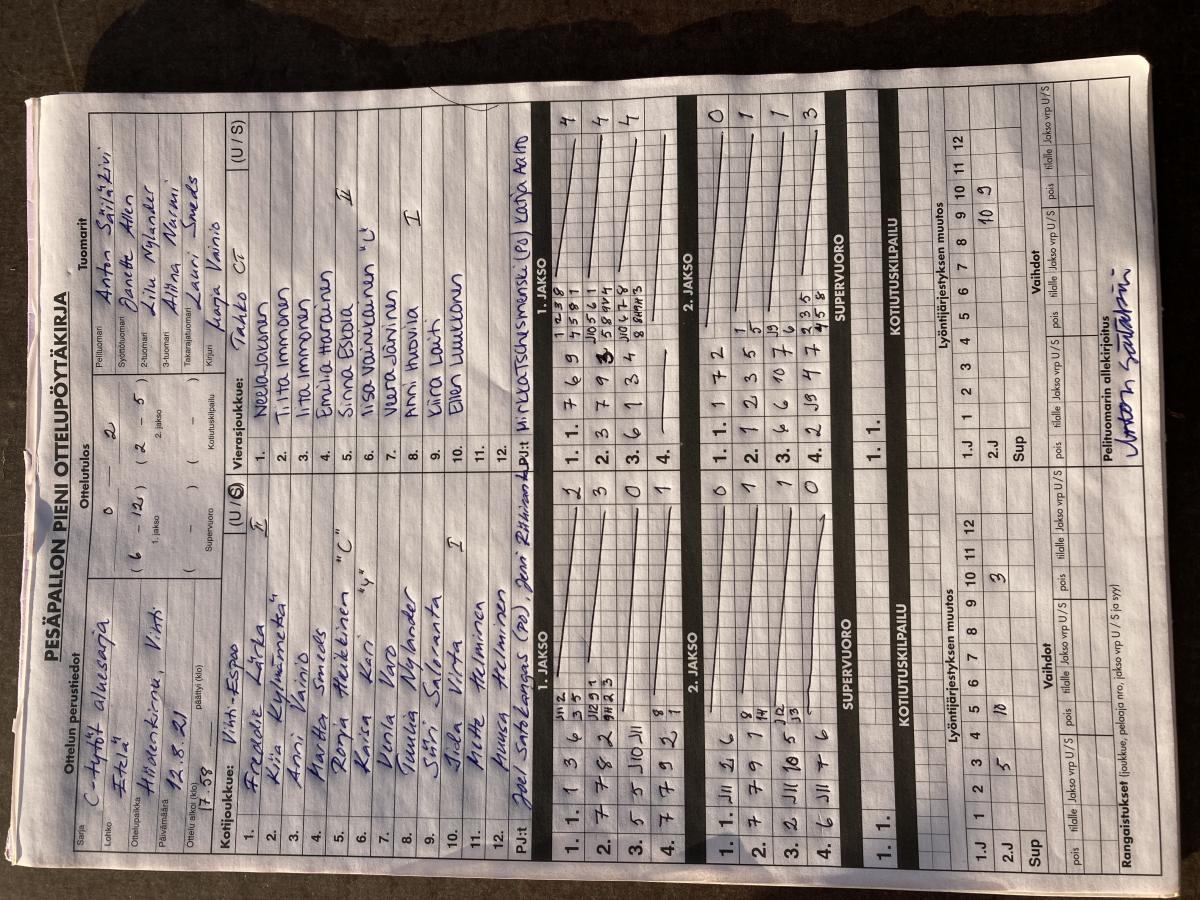 PESÄPALLON PIENI OTTELUPÖYTÄKIRJA
Ottelun perustiedot
Sarja C-tytöt aluesarja
Lohko Etelä
Ottelupaikka Hiidenkirnu, Vihti
Päivämäärä 12.8.21
Ottelu alkoi (klo) 17.58 päättyi (klo)
Ottelutulos
0 — 2
( 6 - 12 ) ( 2 - 5 )
1. jakso 2. jakso
( - ) ( - )
Supervuoro Kotiutuskilpailu
Tuomarit
Pelituomari Anton Säiläkivi
Syöttötuomari Janette Allen
2-tuomari Lilu Nylander
3-tuomari Alina Nurmi
Takarajatuomari Lauri Smeds
Kirjuri Marja Vainio
Kotijoukkue: Vihti-Espoo (U / S)
1. Freddie Lärka
2. Kiia Kylmämetsä II
3. Anni Vainio
4. Martta Smeds
5. Ronja Heikkinen "C"
6. Kaisa Kari "Y"
7. Venla Varo
8. Tuulia Nylander
9. Siiri Saloranta
10. Iida Virta I
11. Mette Helminen
12. Muusa Helminen
PJ:t Joel Satokangas (PO), Jenni
Vierasjoukkue: Tahko CT (U / S)
1. Neela Jalonen
2. Tilta Immonen
3. Iita Immonen
4. Emilia Harainen
5. Sinna Eskola II
6. Iisa Vainikainen "C"
7. Veera Järvinen
8. Anni Huovila I
9. Kiira Laiti
10. Ellen Luukkonen
11.
12.
PJ:t Mirkka Tschesmenski (PO) Katja Aalto
1. JAKSO
1. 1. 1 3 6 J11 2 3 5 2
2. 7 7 8 2 J12 9 1 9 11 2 3 3
3. 5 5 J10 J11 0
4. 7 7 9 2 8 1 1
1. JAKSO
1. 1. 7 6 9 1 2 3 8 4 5 8 1 4
2. 3 7 9 3 J10 5 6 1 4
3. 6 1 3 4 J10 6 7 8 4
4.
2. JAKSO
1. 1. J11 2 6 0
2. 7 7 9 1 8 1
3. 2 J11 10 5 J12 J3 1
4. 6 J11 7 6 0
2. JAKSO
1. 1. 1 7 2 0
2. 1 2 3 5 1 5 1
3. 6 6 10 7 J9 6 1
4. 2 J9 4 7 2 3 5 4 5 8 3
SUPERVUORO
1. 1.
SUPERVUORO
1. 1.
KOTIUTUSKILPAILU
KOTIUTUSKILPAILU
Lyöntijärjestyksen muutos
1.J 1 2 3 4 5 6 7 8 9 10 11 12
2.J 5 10 3
Sup
Lyöntijärjestyksen muutos
1.J 1 2 3 4 5 6 7 8 9 10 11 12
2.J 10 9
Sup
Vaihdot
pois tilalle Jakso vrp U / S pois tilalle Jakso vrp U / S pois tilalle Jakso vrp U / S
Vaihdot
pois tilalle Jakso vrp U / S pois tilalle Jakso vrp U / S pois tilalle Jakso vrp U / S
Rangaistukset (joukkue, pelaaja nro, jakso vrp U / S ja syy)
Pelituomarin allekirjoitus
Anton Säiläkivi